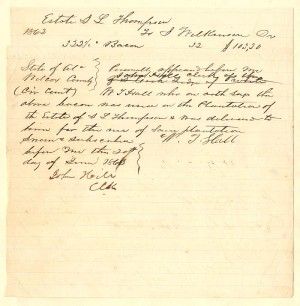 Estate S L Thompson
1863 To S Wilkinson Dr
322½ Bacon 32 $103,20
State of Ala } Personally appeared before me
Wilcox County } John Hill clerk of the
(Cir Court) } W T Hall who on oath says the
above bacon was used on the Plantation of
the Estate of S L Thompson & was delivered to
him for the use of said plantation
Sworn & subscribed } W. T. Hall
before me this
day of 1863
John Hill
Clk